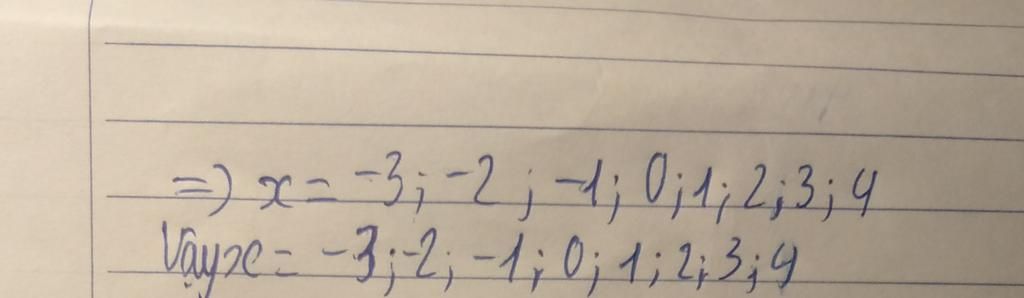 =) x = -3; -2; -1; 0; 1; 2; 3; 4
Vậy x = -3; -2; -1; 0; 1; 2; 3; 4